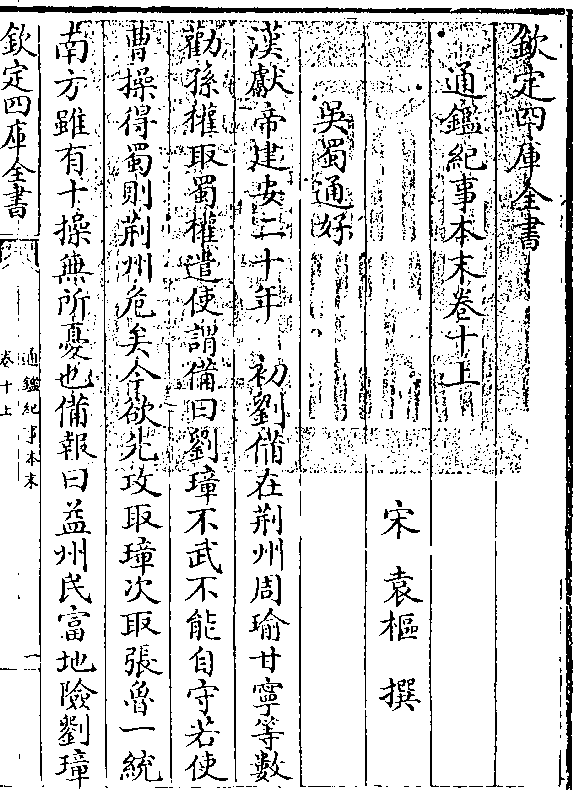 欽定四庫全書
通鑑紀事本末卷十上
宋 袁樞 撰
吳蜀通好
漢獻帝建安二十年 初劉備在荆州周瑜甘寧等數
勸孫權取蜀權遣使謂備曰劉璋不武不能自守若使
曹操得蜀則荆州危矣今欲先攻取璋次取張魯一統
南方雖有十操無所憂也備報曰益州民富地險劉璋
欽定四庫全書
通鑑紀事本末
卷十上
一